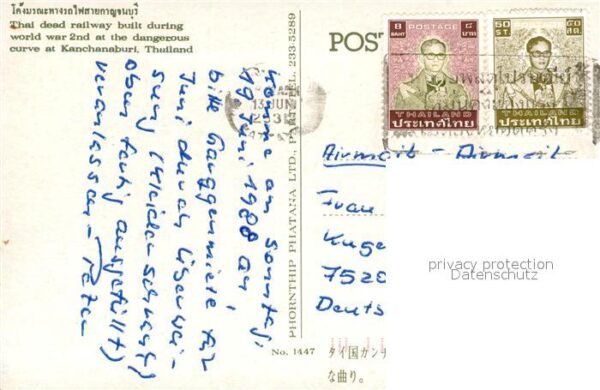 โค้งมรณะทางรถไฟสายกาญจนบุรี
Thai dead railway built during
world war 2nd at the dangerous
curve at Kanchanaburi, Thailand
Komme am Sonntag,
19 Juni 1988 an,
bitte Garagenmiete für
Juni durch Überwei-
sung (Kleiderschrank)
oben fertig ausgefüllt)
veranlassen – Peter
PHORNTHIP PHATANA LTD., PART. TEL. 233-5289
No. 1447
POST
8
BAHT
POSTAGE
๘
บาท
THAILAND
ประเทศไทย
50
ST.
๕๐
สต.
THAILAND
ประเทศไทย
13 JUN
Airmail - Airmail
Frau
Kuge
7520
Deuts
タイ国カンチ
な曲り。
privacy protection
Datenschutz